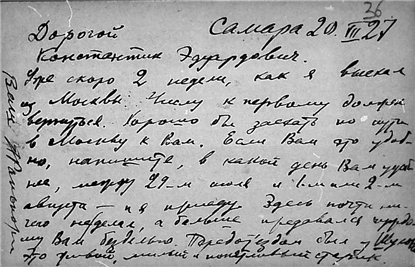 26
Самара 20 VII 27
Дорогой
Константин Эдуардович.
Уже скоро 2 недели, как я выехал
из Москвы. Числу к первому должен
вернуться. Хорошо бы заехать по пути
в Москву к Вам. Если Вам это удоб-
но, напишите, в какой день Вам удоб
нее, между 29-м июля и 1-м или 2-м
августа – и я приеду. Здесь почти ни-
чего не делал, а больше предавался
му Вам безделью. Перед отъездом был у
это живой, милый и
Ваш